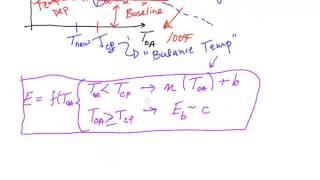 DEP
Baseline
T_new T_cp T_OA 100°F
"Balance Temp"
E = f(T_OA { T_OA < T_CP → m (T_OA) + b
T_OA ≥ T_CP → E_b ~ c